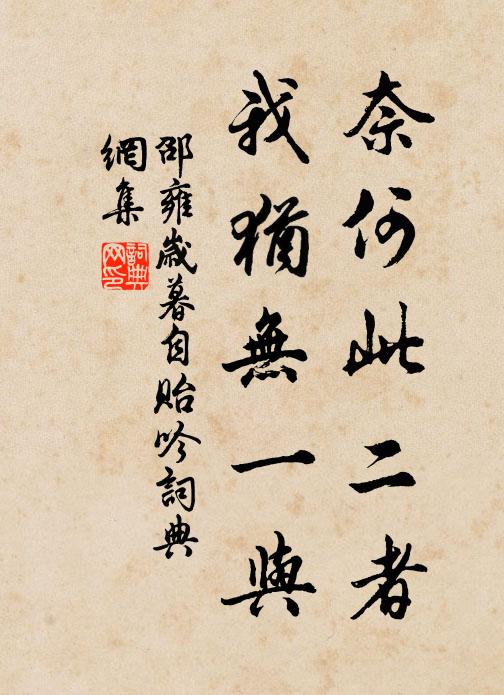 奈何此二者
我猶無一與
邵雍歲暮自貽吟詞典
網集
詞典
网印